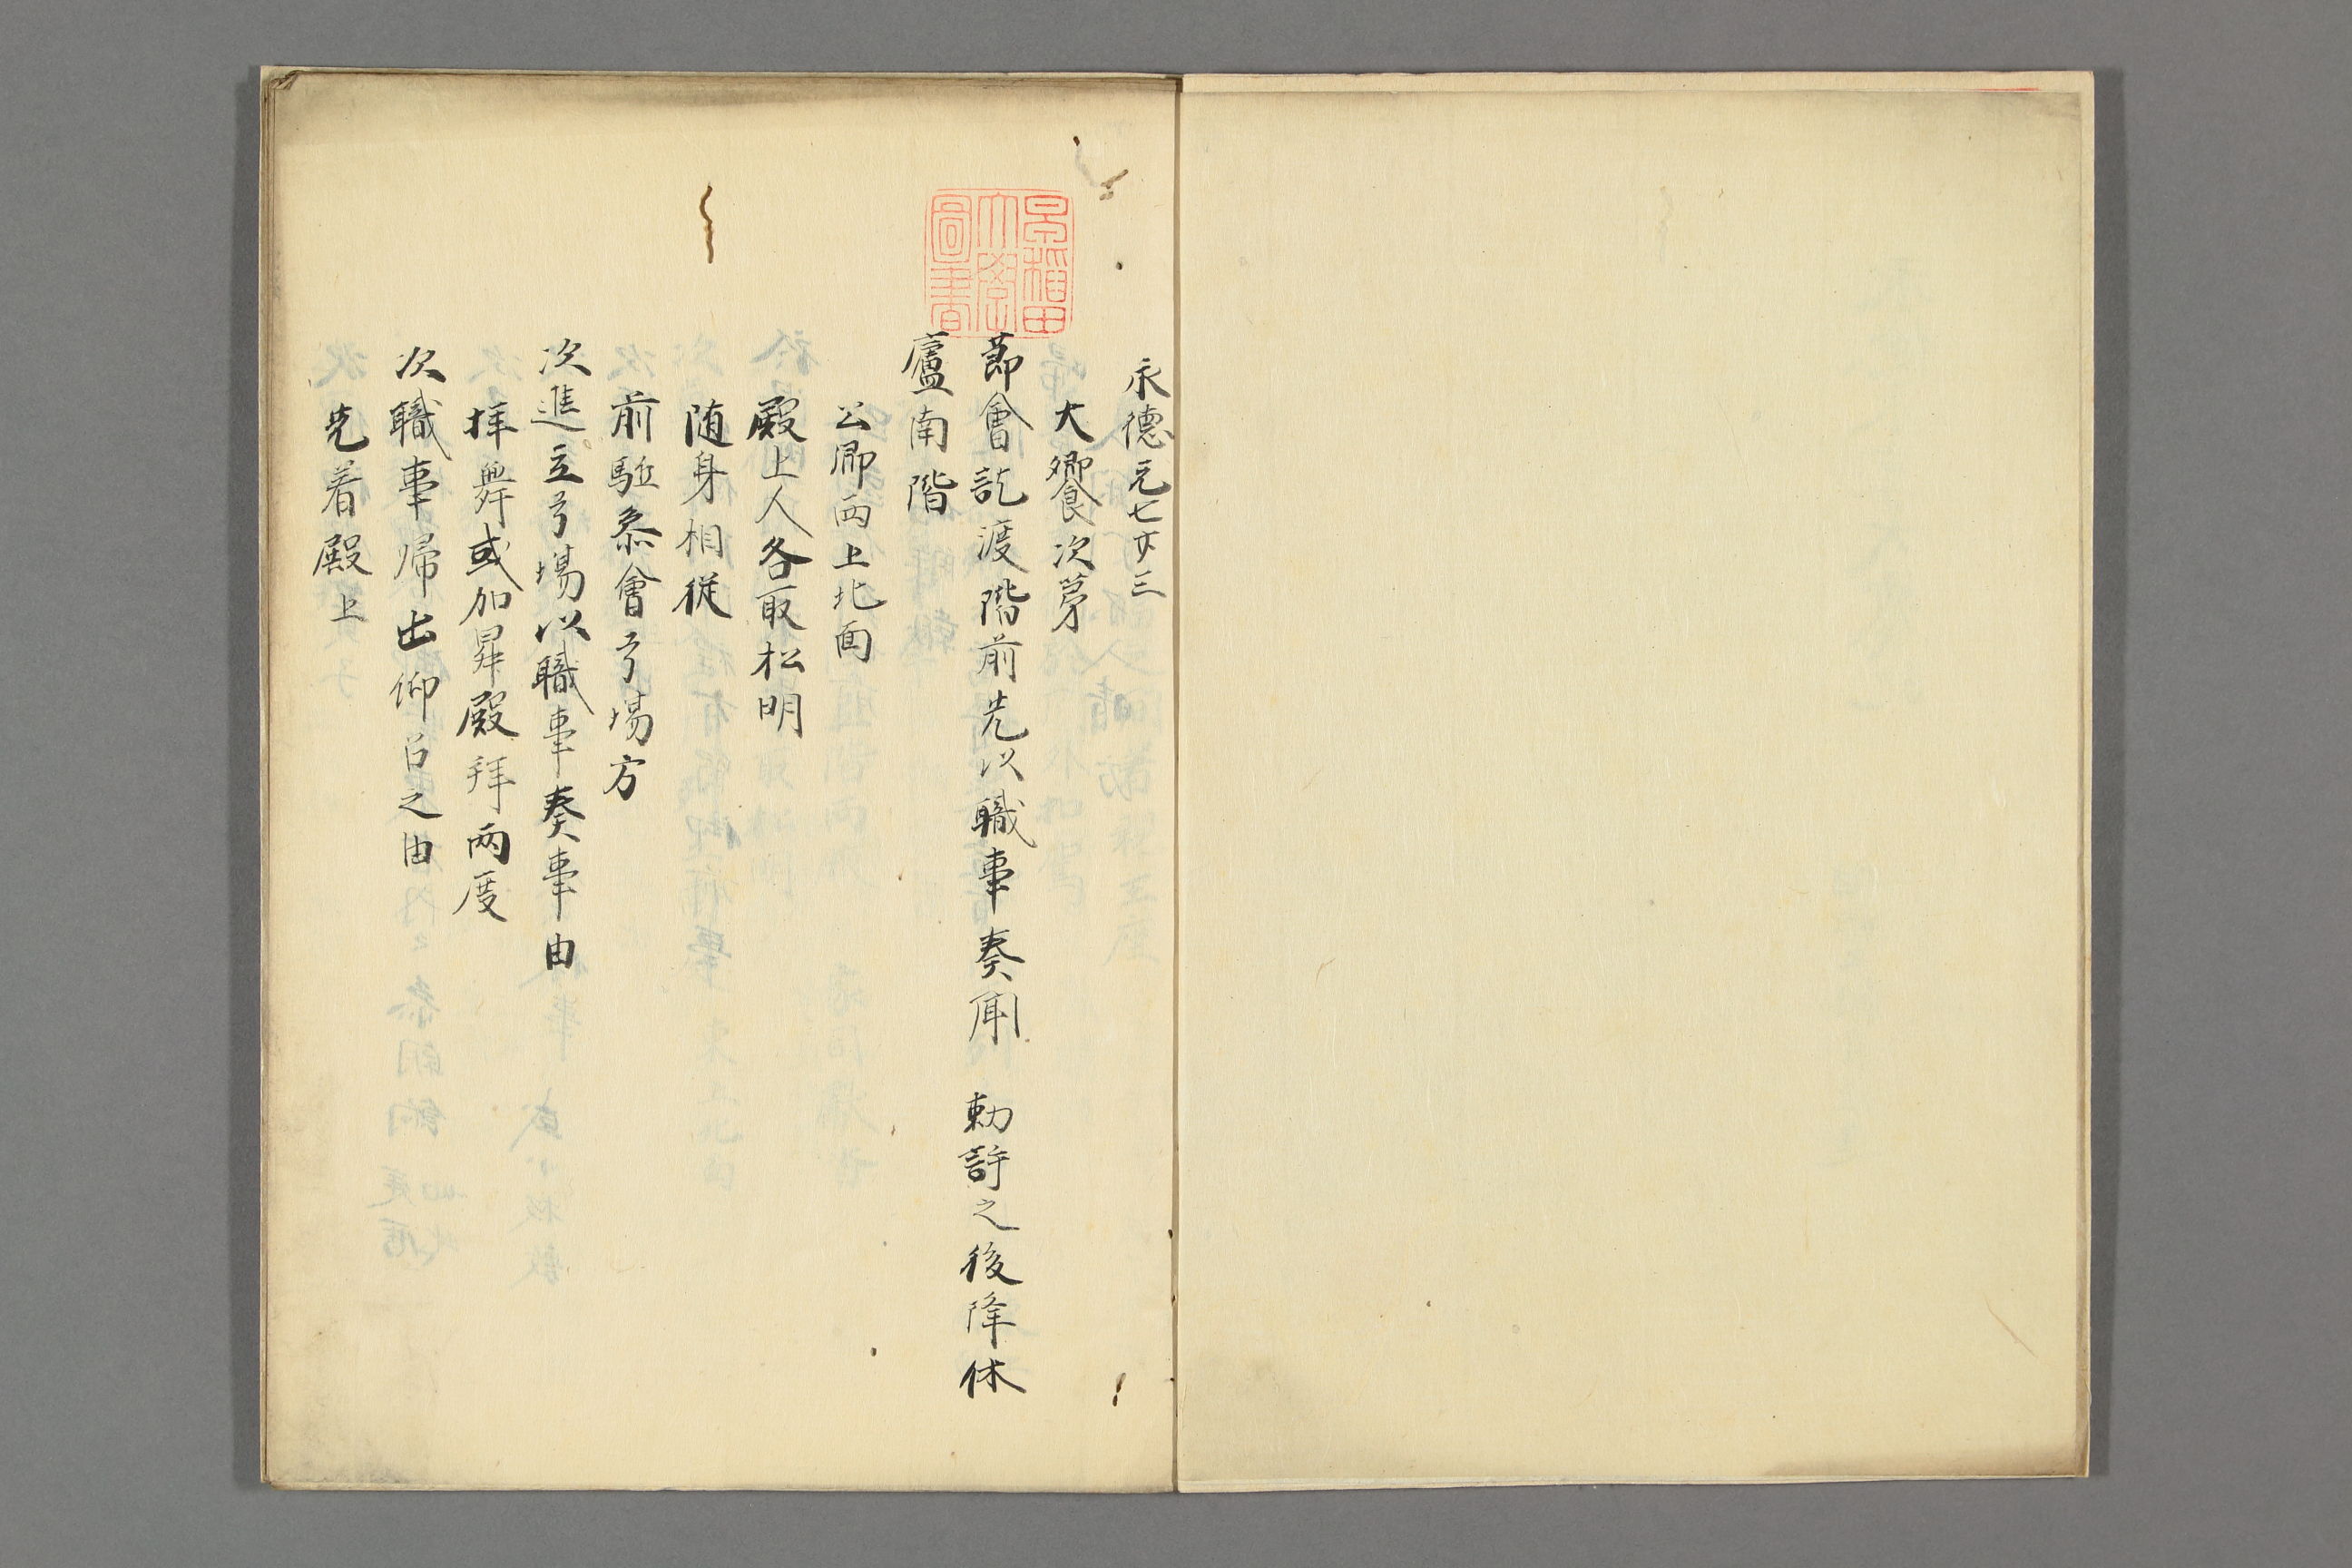 永德元七廿三
大饗次第
節會訖渡階前先以職事奏聞　勅許之後降休
廬南階
公卿両上北面
殿上人各取松明
随身相従
前駈参會弓場方
次進立弓場以職事奏事由
拝舞或加昇殿拝両度
次職事帰出仰召之由
先着殿上
早稲田
大學
圖書